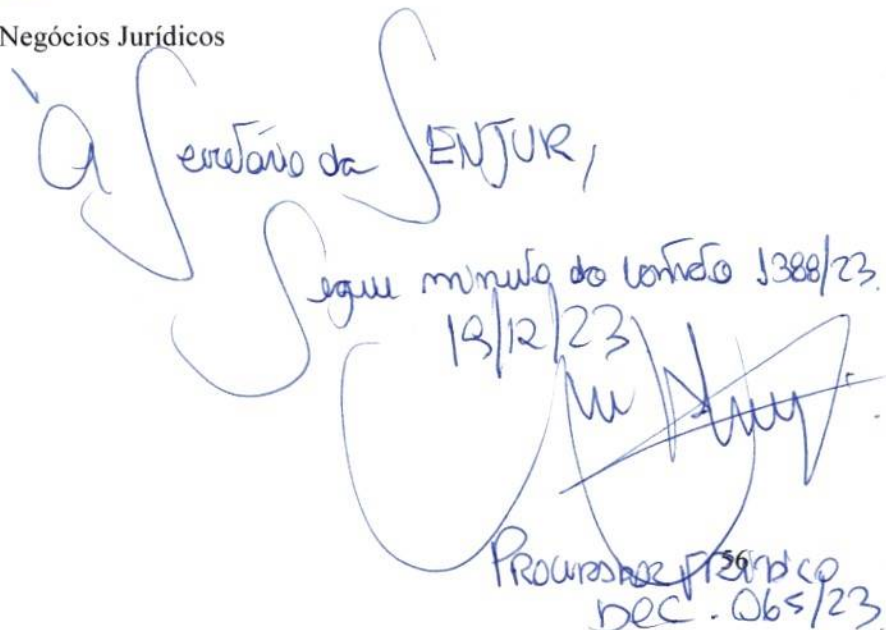 Negócios Jurídicos
À Secretário da SENJUR,
Segue minuta do contrato 1388/23.
19/12/23
56
Procurador Jurídico
DEC. 065/23